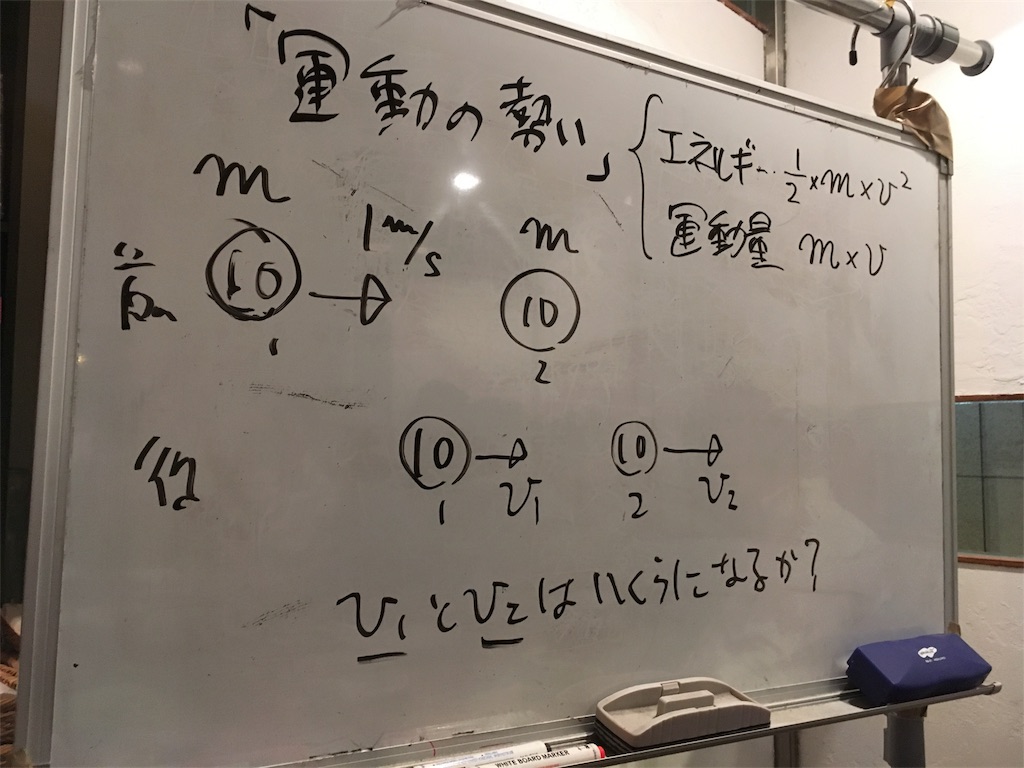 「運動の勢い」
エネルギー… 1/2×m×v²
運動量 m×v
前
m
10
1
1m/s
m
10
2
後
10
1
v₁
10
2
v₂
v₁とv₂はいくらになるか?
WHITE BOARD MARKER